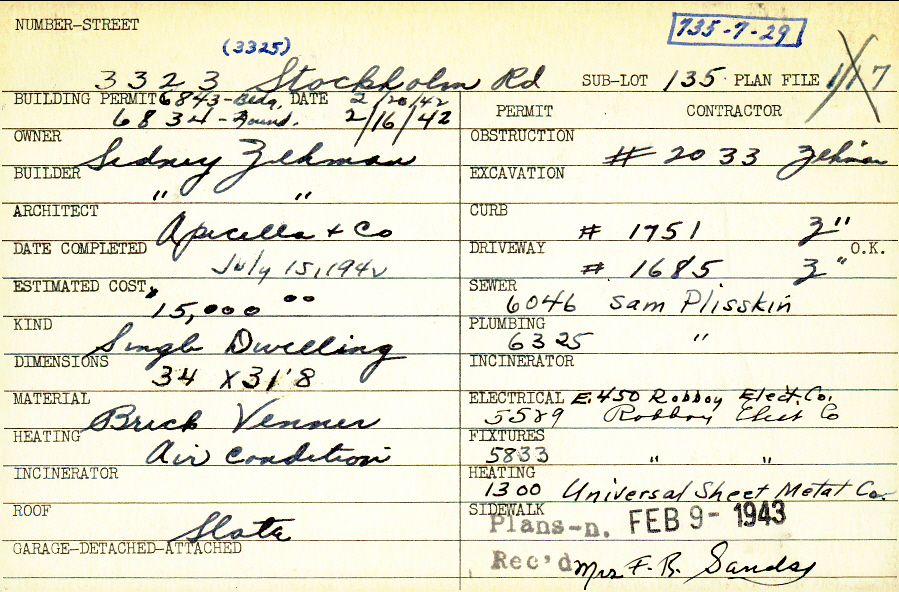 NUMBER-STREET
(3325)
735-7-29
3323 Stockholm Rd
SUB-LOT 135 PLAN FILE 1/17
BUILDING PERMIT 6843-Bldg. DATE 2/20/42
6834-Found. 2/16/42
OWNER Sidney Zehman
BUILDER " "
ARCHITECT Apicella + Co
DATE COMPLETED July 15, 1942
ESTIMATED COST 15,000 00
KIND Single Dwelling
DIMENSIONS 34 X 31'8
MATERIAL Brick Venner
HEATING Air Condition
INCINERATOR
ROOF Slate
GARAGE-DETACHED-ATTACHED
PERMIT CONTRACTOR
OBSTRUCTION # 2033 Zehman
EXCAVATION
CURB # 1751 Z"
DRIVEWAY # 1685 Z" O.K.
SEWER 6046 Sam Plisskin
PLUMBING 6325 "
INCINERATOR
ELECTRICAL E.450 Robboy Elect. Co.
5589 Robboy Elect Co
FIXTURES 5833 " "
HEATING 1300 Universal Sheet Metal Co.
SIDEWALK
Plans-n. FEB 9-1943
Rec'd Mrs F. B. Sands